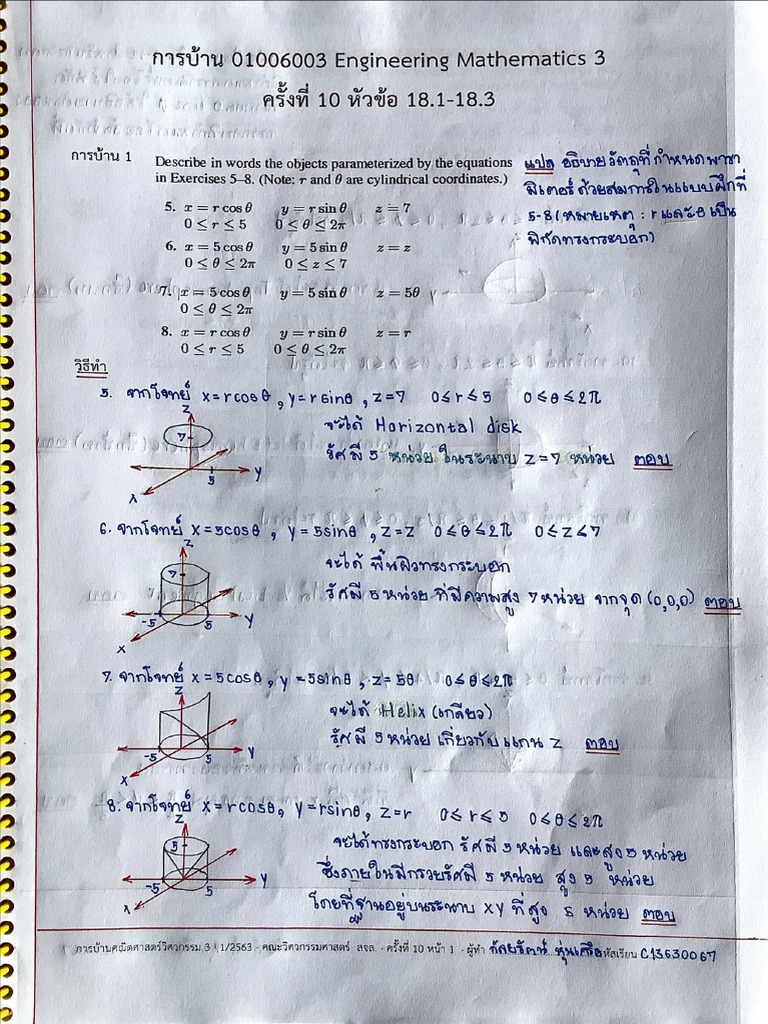 การบ้าน 01006003 Engineering Mathematics 3
ครั้งที่ 10 หัวข้อ 18.1-18.3
การบ้าน 1
Describe in words the objects parameterized by the equations
in Exercises 5–8. (Note: r and θ are cylindrical coordinates.)
แปล อธิบายวัตถุที่กำหนดพารา
มิเตอร์ด้วยสมการในแบบฝึกที่
5-8 (หมายเหตุ : r และ θ เป็น
พิกัดทรงกระบอก)
5. x = r cos θ y = r sin θ z = 7
0 ≤ r ≤ 5 0 ≤ θ ≤ 2π
6. x = 5 cos θ y = 5 sin θ z = z
0 ≤ θ ≤ 2π 0 ≤ z ≤ 7
7. x = 5 cos θ y = 5 sin θ z = 5θ
0 ≤ θ ≤ 2π
8. x = r cos θ y = r sin θ z = r
0 ≤ r ≤ 5 0 ≤ θ ≤ 2π
วิธีทำ
5. จากโจทย์ x = rcosθ , y = rsinθ , z = 7 0 ≤ r ≤ 5 0 ≤ θ ≤ 2π
จะได้ Horizontal disk
รัศมี 5 หน่วย ในระนาบ z = 7 หน่วย ตอบ
z
7
5
y
x
6. จากโจทย์ x = 5cosθ , y = 5sinθ , z = z 0 ≤ θ ≤ 2π 0 ≤ z ≤ 7
จะได้ พื้นผิวทรงกระบอก
รัศมี 5 หน่วย ที่มีความสูง 7 หน่วย จากจุด (0,0,0) ตอบ
z
7
-5 5 y
x
7. จากโจทย์ x = 5cosθ , y = 5sinθ , z = 5θ 0 ≤ θ ≤ 2π
จะได้ Helix (เกลียว)
รัศมี 5 หน่วย เกี่ยวกับแกน z ตอบ
z
-5 5 y
x
8. จากโจทย์ x = rcosθ , y = rsinθ , z = r 0 ≤ r ≤ 5 0 ≤ θ ≤ 2π
จะได้ทรงกระบอก รัศมี 5 หน่วย และสูง 5 หน่วย
ซึ่งภายในมีกรวยรัศมี 5 หน่วย สูง 5 หน่วย
โดยที่ฐานอยู่บนระนาบ xy ที่สูง 5 หน่วย ตอบ
z
5
-5 5 y
x
การบ้านคณิตศาสตร์วิศวกรรม 3 1/2563 - คณะวิศวกรรมศาสตร์ สจล. - ครั้งที่ 10 หน้า 1 - ผู้ทำ รหัสเรียน C13630067